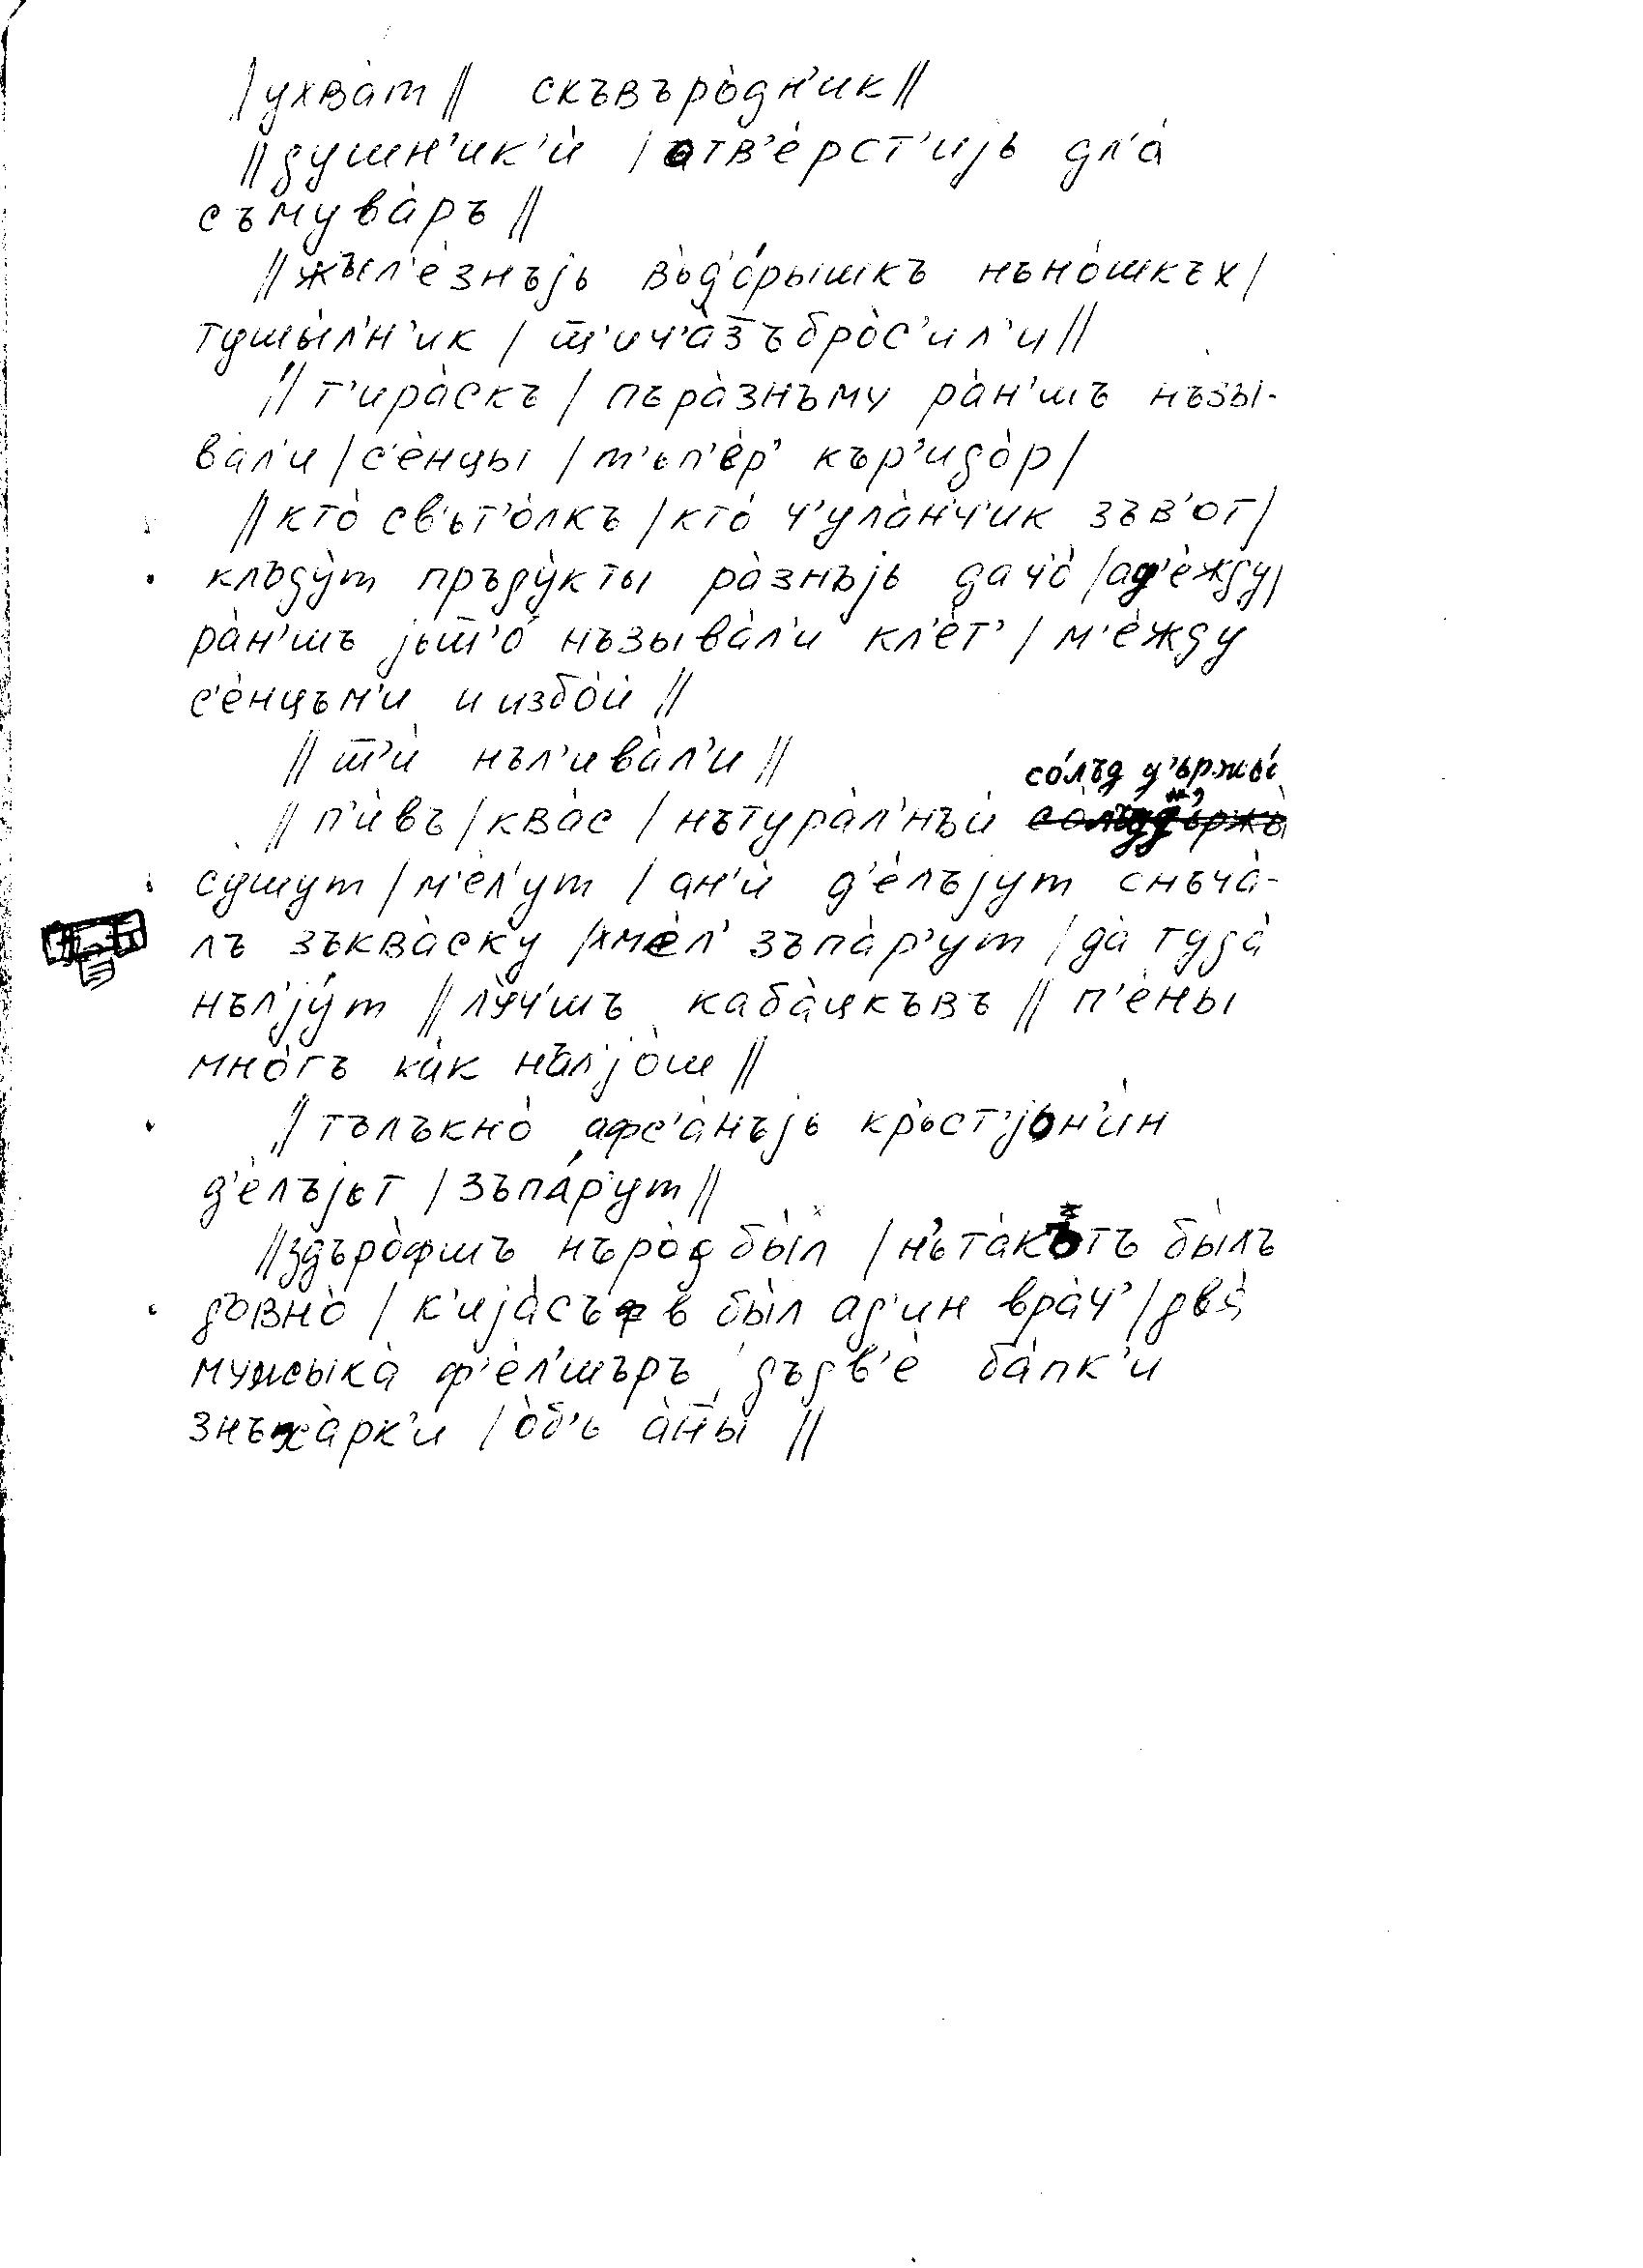 |ухва̀т|| скъвъро̀дн'ик||
||душн'ик'ѝ |атв'ѐрст'иjь дл'а̀
съмува̀ръ||
||жъл'ѐзнъjь въд'о́рышкъ нъно́шкъх|
тушы̀л'н'ик / т̅'ич'а̀с̅ъбро̀с'ил'и||
||т'ира̀скъ / пъра̀знъму ра̀н'шъ нъзы-
ва̀л'и /с'ѐнцы /т'ьп'ѐр' кър'идо̀р/
||кто̀ св'ьт'о̀лкъ /кто̀ ч'ула̀н'ч'ик зъв'от/
клъду̀т пръду̀кты ра̀знъjь да ч'о̀ /ад'ѐжду/
ра̀н'шъ jьт̅'о̀ нъзыва̀л'и кл'ѐт' / м'ѐжду
с'ѐнцъм'и и избо̀й ||
||т̅'ѝ нъл'ива̀л'и||
со́лъд д'ържы́
||п'ѝвъ /ква̀с / нътура̀л'нъй
су̀шут /м'ѐл'ут / ан'ѝ д'ѐлъjут снъча̀-
лъ зъква̀ску /хмѐл' зъпа̀р'ут / да̀ туда̀
нъл'jу́т || лу̀ч'шъ каба̀цкъвъ || п'ѐны
мно̀гъ ка̀к нъл'jо̀ш ||
||тълъкно̀ афс'а̀нъjь кр'ьст'jън'ѝн
д'ѐлъjьт / зъпа́р'ут||
||здъро̀фшъ нъро̀д бы̀л /н'ьта̀кътъ бы̀лъ
дъвно̀ / к'иjа̀съв бы̀л ад'ин вра̀ч' /два̀
мужыка̀ ф'ѐл'шъръ, дъдв'ѐ ба̀пк'и
знъха̀рк'и /о̀б'ь а̀н̅ы ||